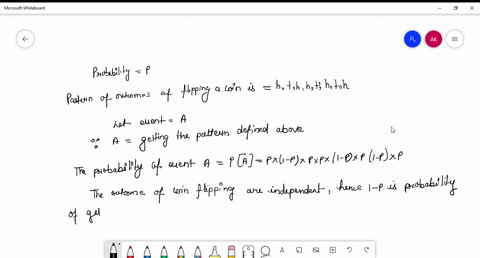 Microsoft Whiteboard
AK
Probability = P
Pattern of outcomes of flipping a coin is = h, t, h, h, t, h, t, h
Let event = A
∴ A = getting the pattern defined above
The probability of event A = P[A] = P×(1-P)×P×P×(1-P)×P(1-P)×P
The outcome of coin flipping are independent, hence 1-P is probability
of get